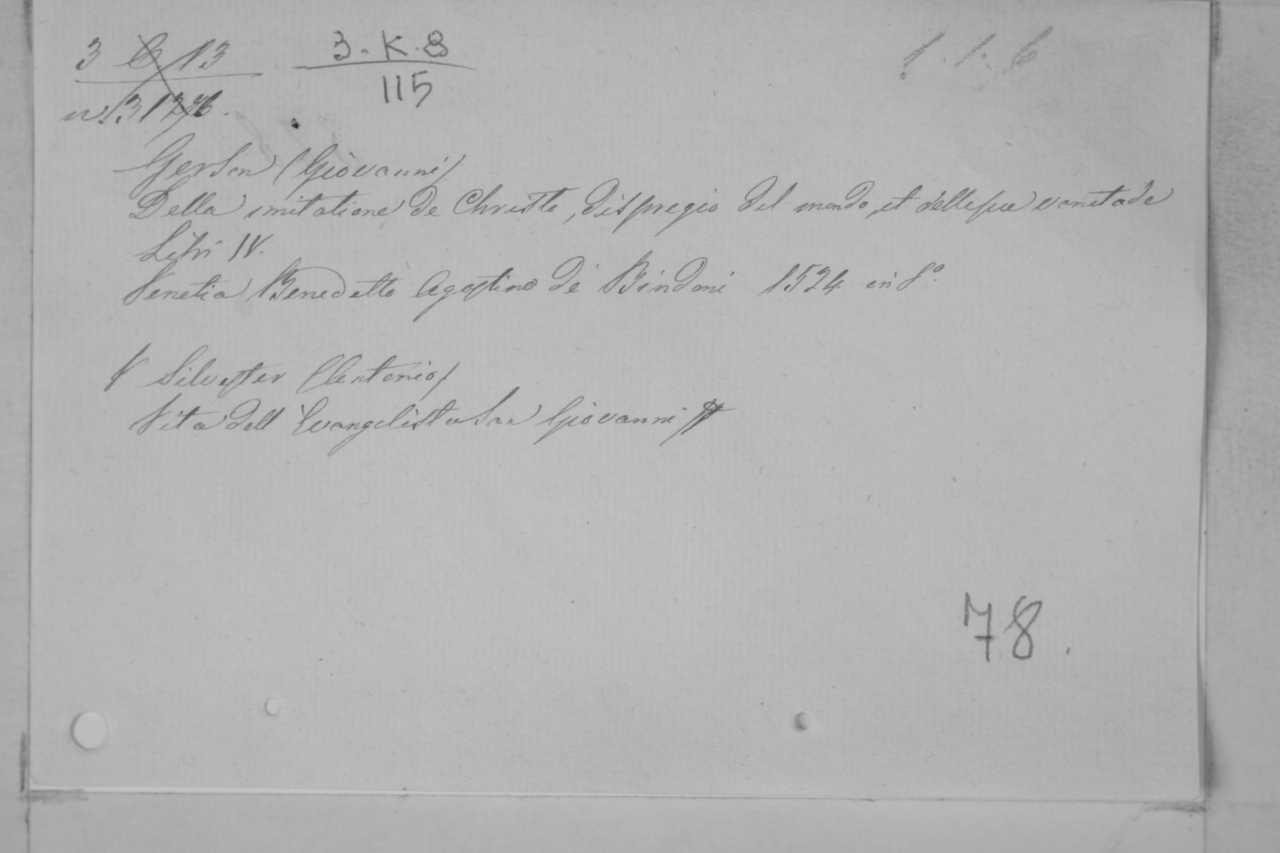 3 C 13
3-K-8
1.1.6
n. 3176.
115
Gerson (Giovanni)
Della imitatione de Christo, dispregio del mondo, et delle sue vanitade
Libri IV.
Venetia Benedetto Agostino de Bindoni 1524 in 8°.
V Silvester (Antonio)
Vita dell' Evangelista San Giovanni
78.